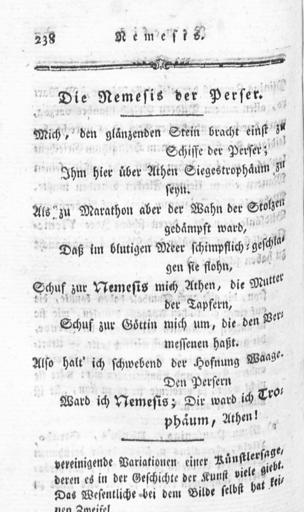 238 Nemesis.
Die Nemesis der Perser.
Mich, den glänzenden Stein bracht einst zu
Schiffe der Perser;
Ihm hier über Athen Siegestrophäum zu
seyn.
Als zu Marathon aber der Wahn der Stolzen
gedämpft ward,
Daß im blutigen Meer schimpflich-geschla-
gen sie flohn,
Schuf zur Nemesis mich Athen, die Mutter
der Tapfern,
Schuf zur Göttin mich um, die den Ver-
messenen haßt.
Also halt' ich schwebend der Hofnung Waage.
Den Persern
Ward ich Nemesis; Dir ward ich Tro-
phäum, Athen!
vereinigende Variationen einer Künstlersage,
deren es in der Geschichte der Kunst viele giebt.
Das Wesentliche bei dem Bilde selbst hat kei-
nen Zweifel.